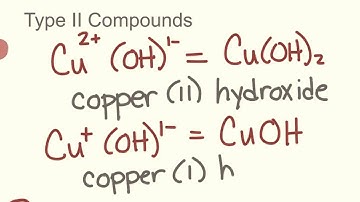 Type II Compounds
Cu²⁺ (OH)¹⁻ = Cu(OH)₂
copper (II) hydroxide
Cu⁺ (OH)¹⁻ = CuOH
copper (I) h